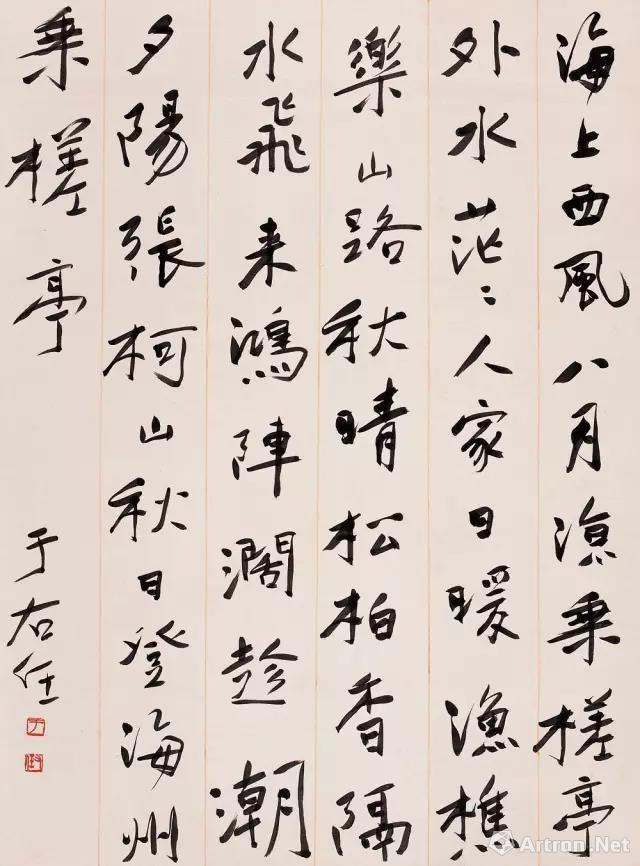 海上西風八月涼乘槎亭
外水茫〻人家日暖漁樵
樂山路秋晴松柏香隔
水飛来鴻陣闊趁潮
夕陽張柯山秋日登海州
乘槎亭
于右任
Artron.Net